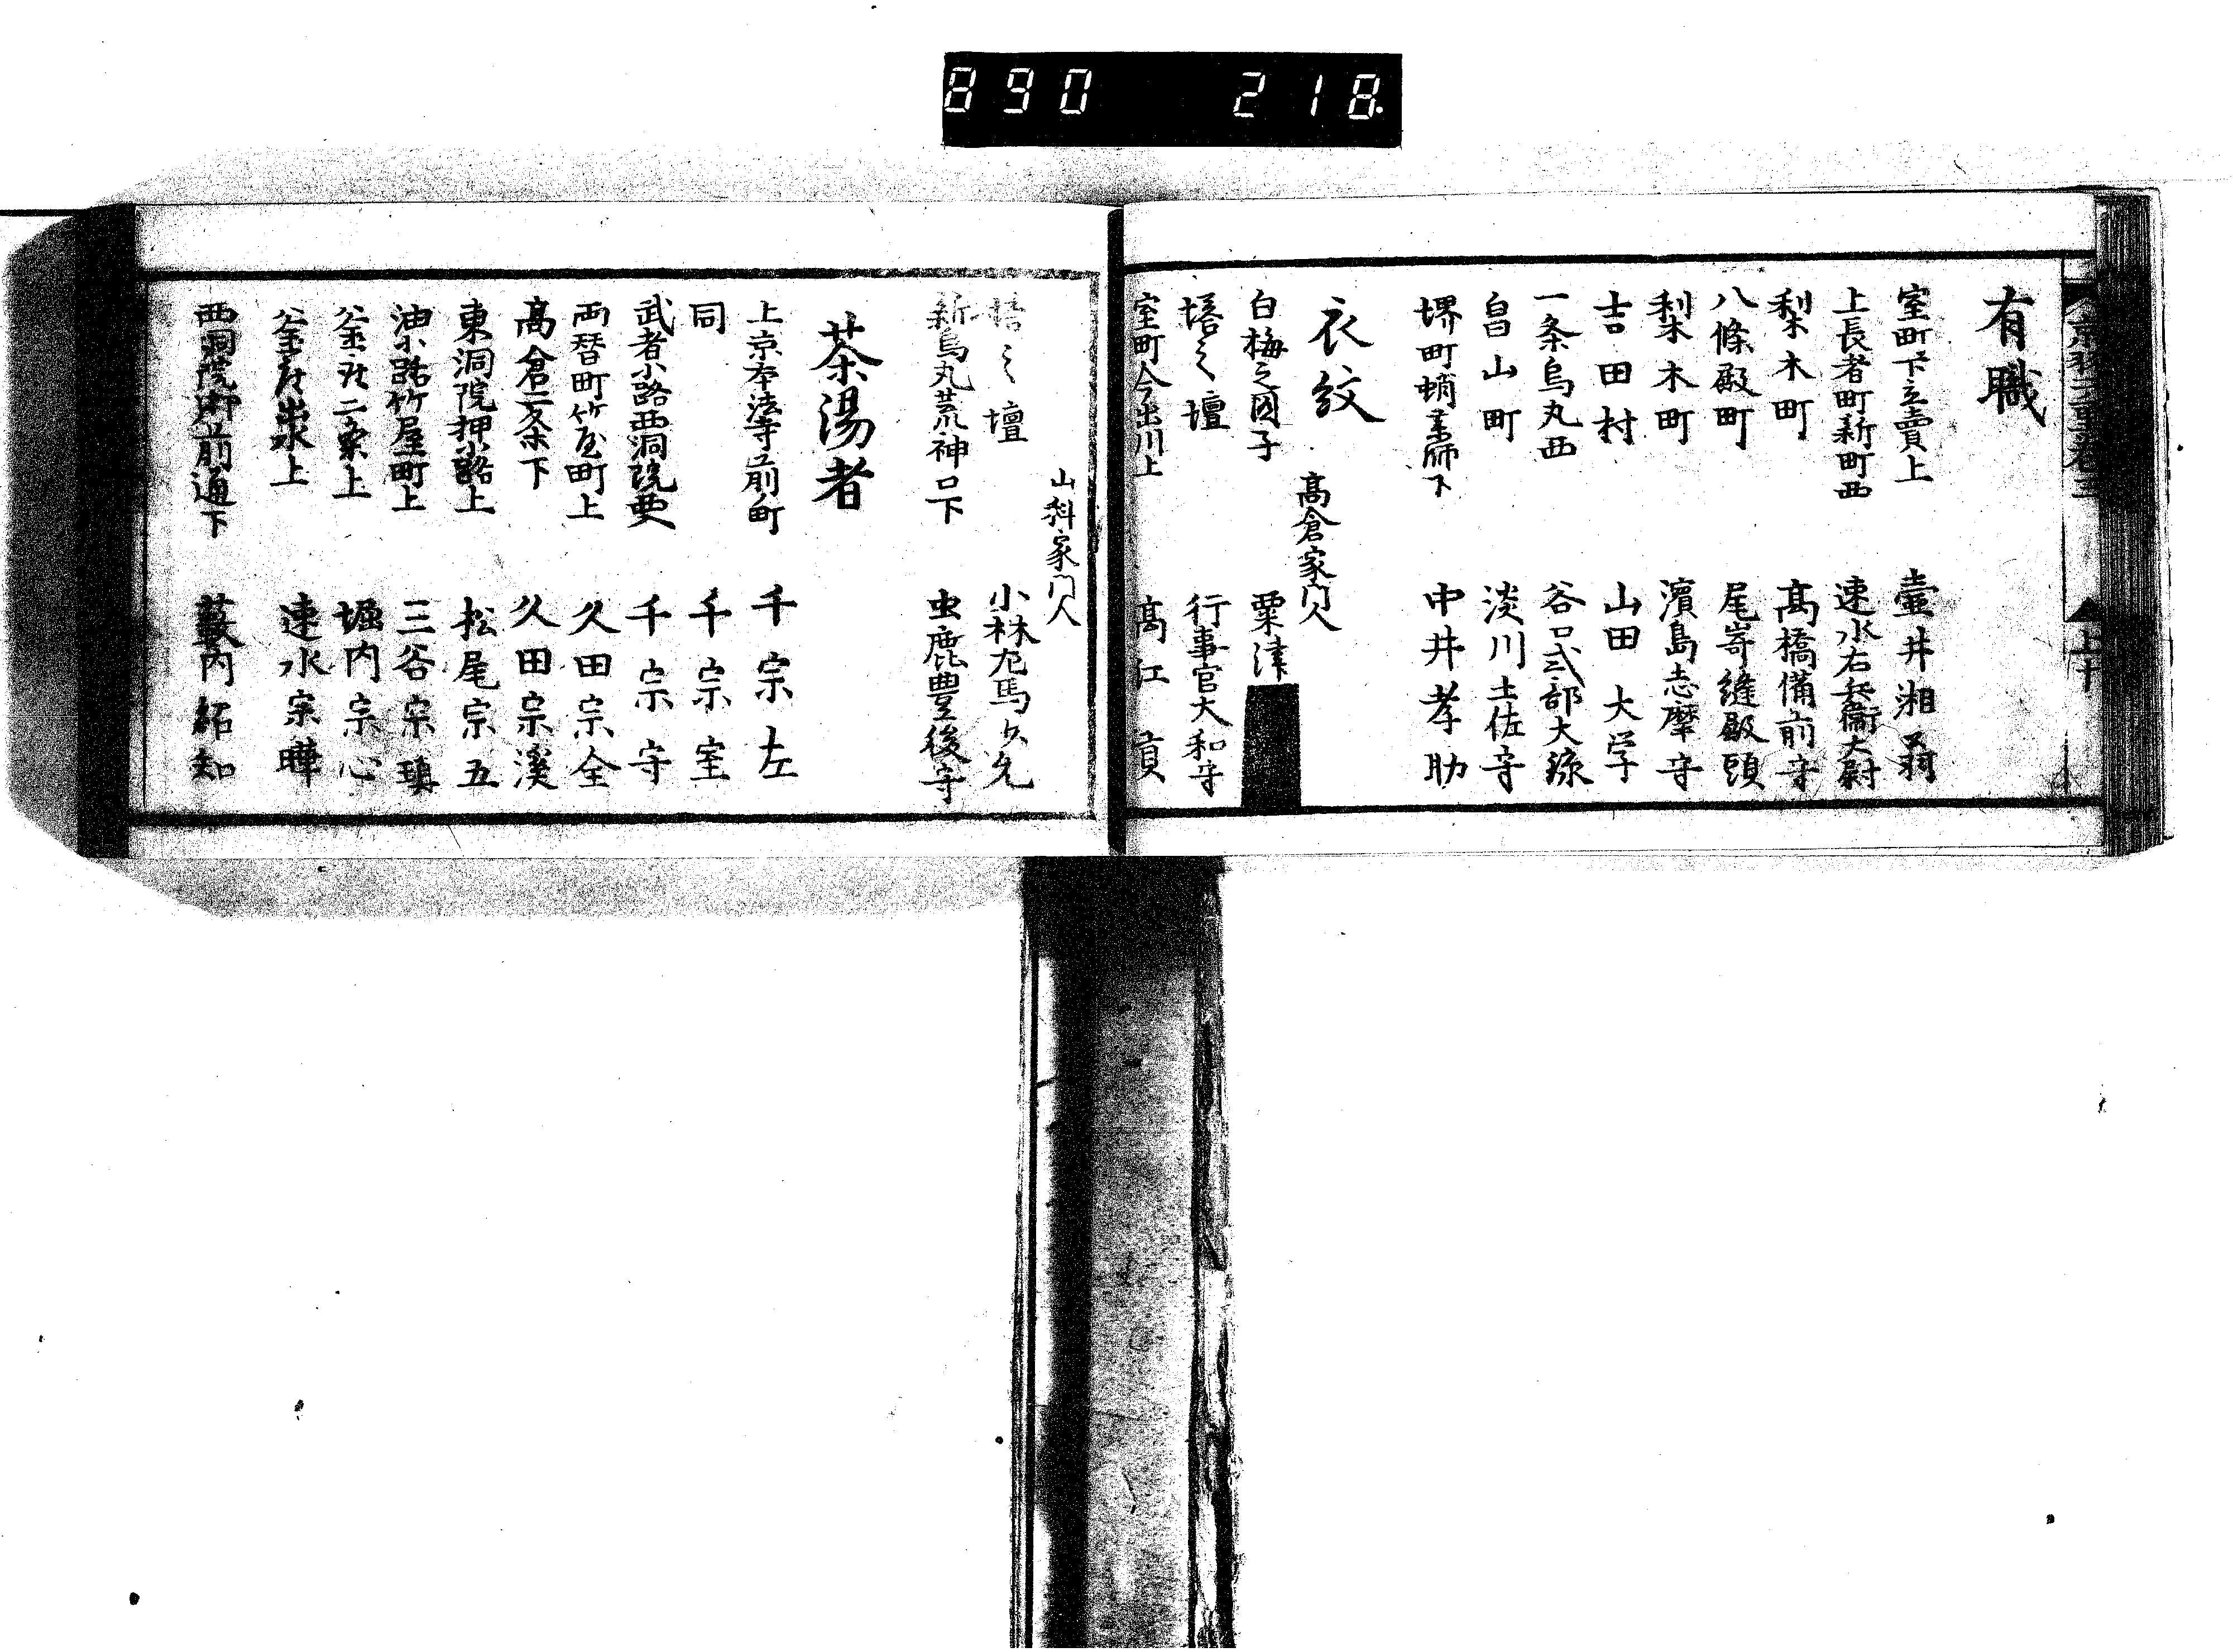 890 218
有職
室町下立賣上 壷井湘翁
上長者町新町西 速水右兵衞大尉
梨木町 髙橋備前守
八條殿町 尾㟢縫殿頭
梨木町 濵島志摩守
吉田村 山田大学
一条烏丸西 谷口式部大
畠山町 淡川土佐守
堺町蛸薬師下 中井孝助
衣紋
髙倉家门人
白梅之図子 粟津
塔之壇 行事官大和守
室町今出川上 髙江貢
山科家门人
塔之壇 小林左馬久允
新烏丸荒神口下 虫鹿豊後守
茶湯者
上京本法寺前町 千宗左
同 千宗室
武者小路西洞院東 千宗守
両替町竹屋町上 久田宗全
髙倉二条下 久田宗溪
東洞院押小路上 松尾宗五
油小路竹屋町上 三谷宗鎮
釜座二条上 堀内宗心
釜座出水上 速水宗曄
西洞院御前通下 藪内紹知